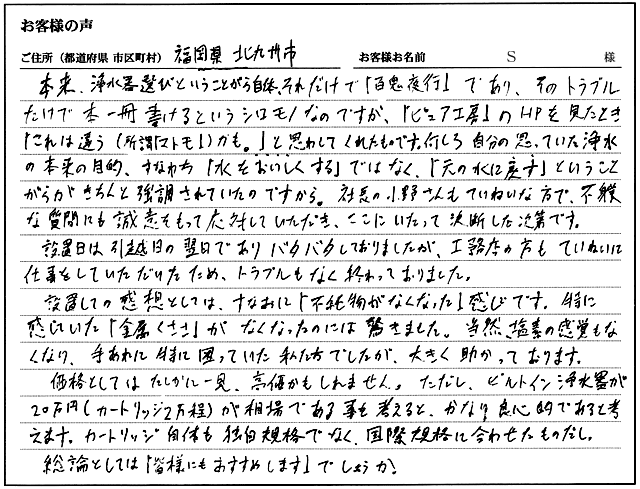 お客様の声
ご住所（都道府県 市区町村） 福岡県 北九州市 お客様お名前 S 様
本来、浄水器選びということがら自体、それだけで「百鬼夜行」であり、そのトラブル
だけで本一冊書けるというシロモノなのですが、「ピュア工房」のHPを見たとき
「これは違う（所謂マトモ！）かも。」と思わしてくれたものです。何しろ自分の思っていた浄水
の本来の目的、すなわち「水をおいしくする」ではなく、「元の水に戻す」ということ
がらがきちんと強調されていたのですから。社長の小野さんもていねいな方で、不躾
な質問にも誠意をもって応対していただき、ここにいたって決断した次第です。
設置日は引越日の翌日でありバタバタしておりましたが、工務店の方もていねいに
仕事をしていただいたため、トラブルもなく終わっておりました。
設置しての感想としては、すなおに「不純物がなくなった」感じです。特に
感じていた「金属くささ」がなくなったのには驚きました。当然、塩素の感覚もな
くなり、手あれに特に困っていた私たちでしたが、大きく助かっております。
価格としてはたしかに一見、高価かもしれません。ただし、ビルトイン浄水器が
20万円（カートリッジ2万程）が相場である事を考えると、かなり良心的であると考
えます。カートリッジ自体も独自規格でなく、国際規格に合わせたものだし。
総論としては「皆様にもおすすめします」でしょうか！